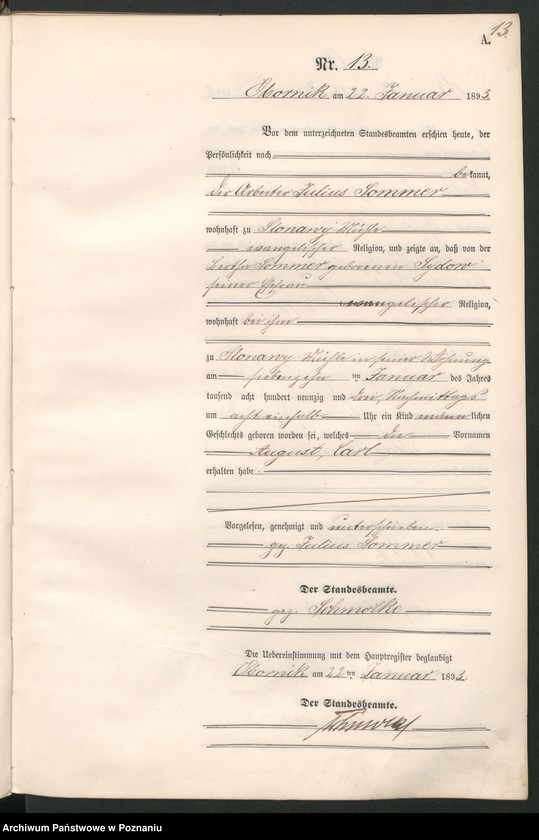 13.
A.
Nr. 13.
Obornik am 22. Januar 1893.
Vor dem unterzeichneten Standesbeamten erschien heute, der
Persönlichkeit nach
bekannt,
der Arbeiter Julius Sommer
wohnhaft zu Slonawy Mühle
evangelischer Religion, und zeigte an, daß von der
Bertha Sommer geborenen Sydow
seiner Ehefrau
evangelischer Religion,
wohnhaft bei ihm
zu Slonawy Mühle in seiner Wohnung
am siebenzehn ten Januar des Jahres
tausend acht hundert neunzig und drei, Nachmittags
um acht einhalb Uhr ein Kind männlichen
Geschlechts geboren worden sei, welches die Vornamen
August, Carl
erhalten habe
Vorgelesen, genehmigt und unterschrieben
gez. Julius Sommer
Der Standesbeamte.
gez. Schmolke
Die Uebereinstimmung mit dem Hauptregister beglaubigt
Obornik am 22 ten Januar 1893.
Der Standesbeamte.
Schmolke
Archiwum Państwowe w Poznaniu